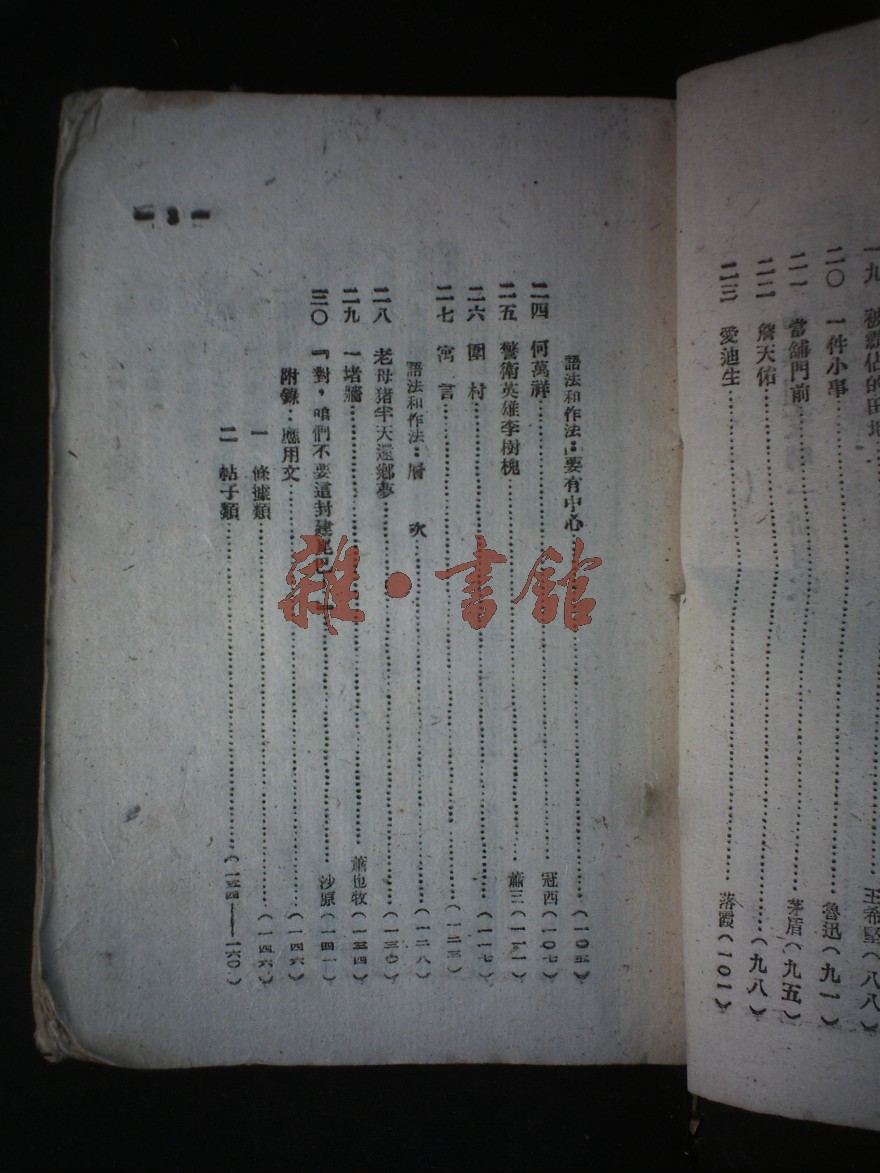 一九 被霸佔的田地……王希堅(八八)
二〇 一件小事……魯迅(九一)
二一 當舖門前……茅盾(九五)
二二 詹天佑……(九八)
二三 愛迪生……落霞(一〇一)
— 3 —
語法和作法：要有中心……(一〇五)
二四 何萬祥……冠西(一〇七)
二五 警衛英雄李樹槐……蕭三(一一一)
二六 圍村……(一一七)
二七 寓言……(一二三)
語法和作法：層次……(一二八)
二八 老母猪半天還鄉夢……(一三〇)
二九 一堵牆……蕭也牧(一三四)
三〇 「對，咱們不要這封建尾巴」……沙原(一四一)
附錄：應用文……(一四六)
一 條據類……(一四六)
二 帖子類……(一五四——一六〇)
雜·書館